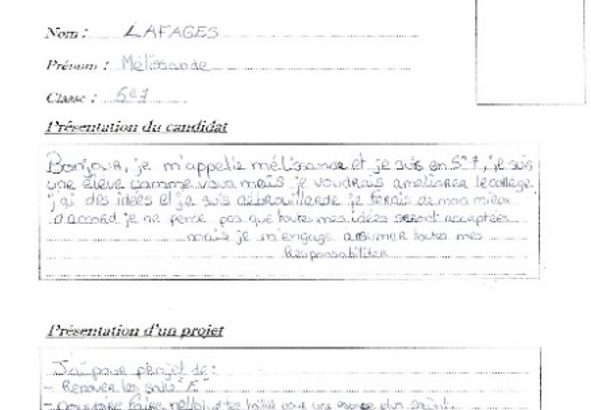 Nom : LAFAGES
Prénom : Mélissande
Classe : 5e7
Présentation du candidat
Bonjour, je m'appelle mélissande et je suis en 5e7, je suis
une élève comme vous mais je voudrais améliorer le collège,
j'ai des idées et je suis débrouillarde je ferais de mon mieu
d'accord je ne pense pas que toutes mes idées seront acceptées
mais je m'engage assumer toutes mes
Responsabiliter
Présentation d'un projet
J'ai pour projet de :
- Renover les
- pouvoire faire les pour une plus